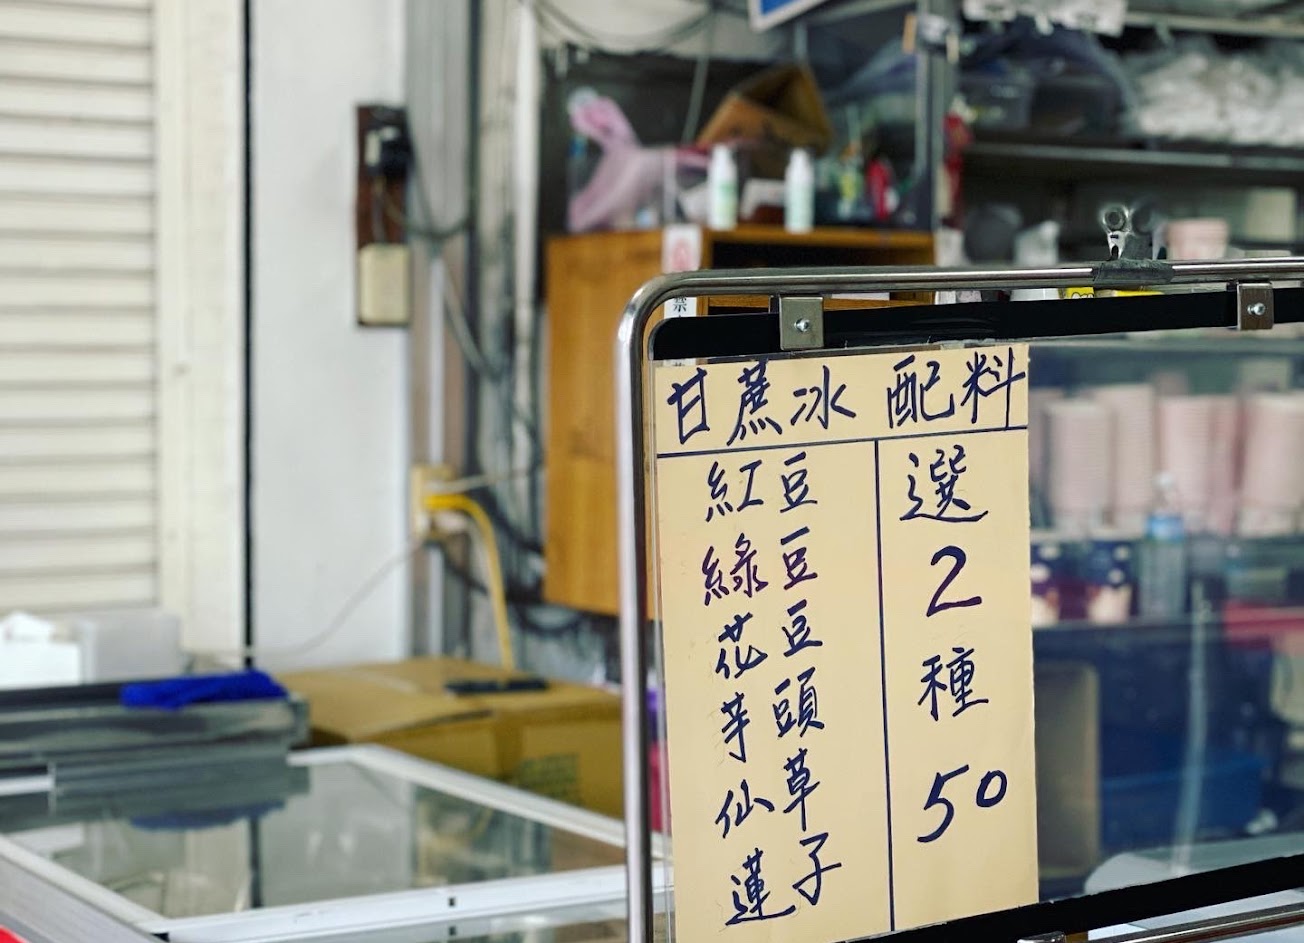 甘蔗冰 配料
紅豆
綠豆
花豆
芋頭
仙草
蓮子
選
2
種
50